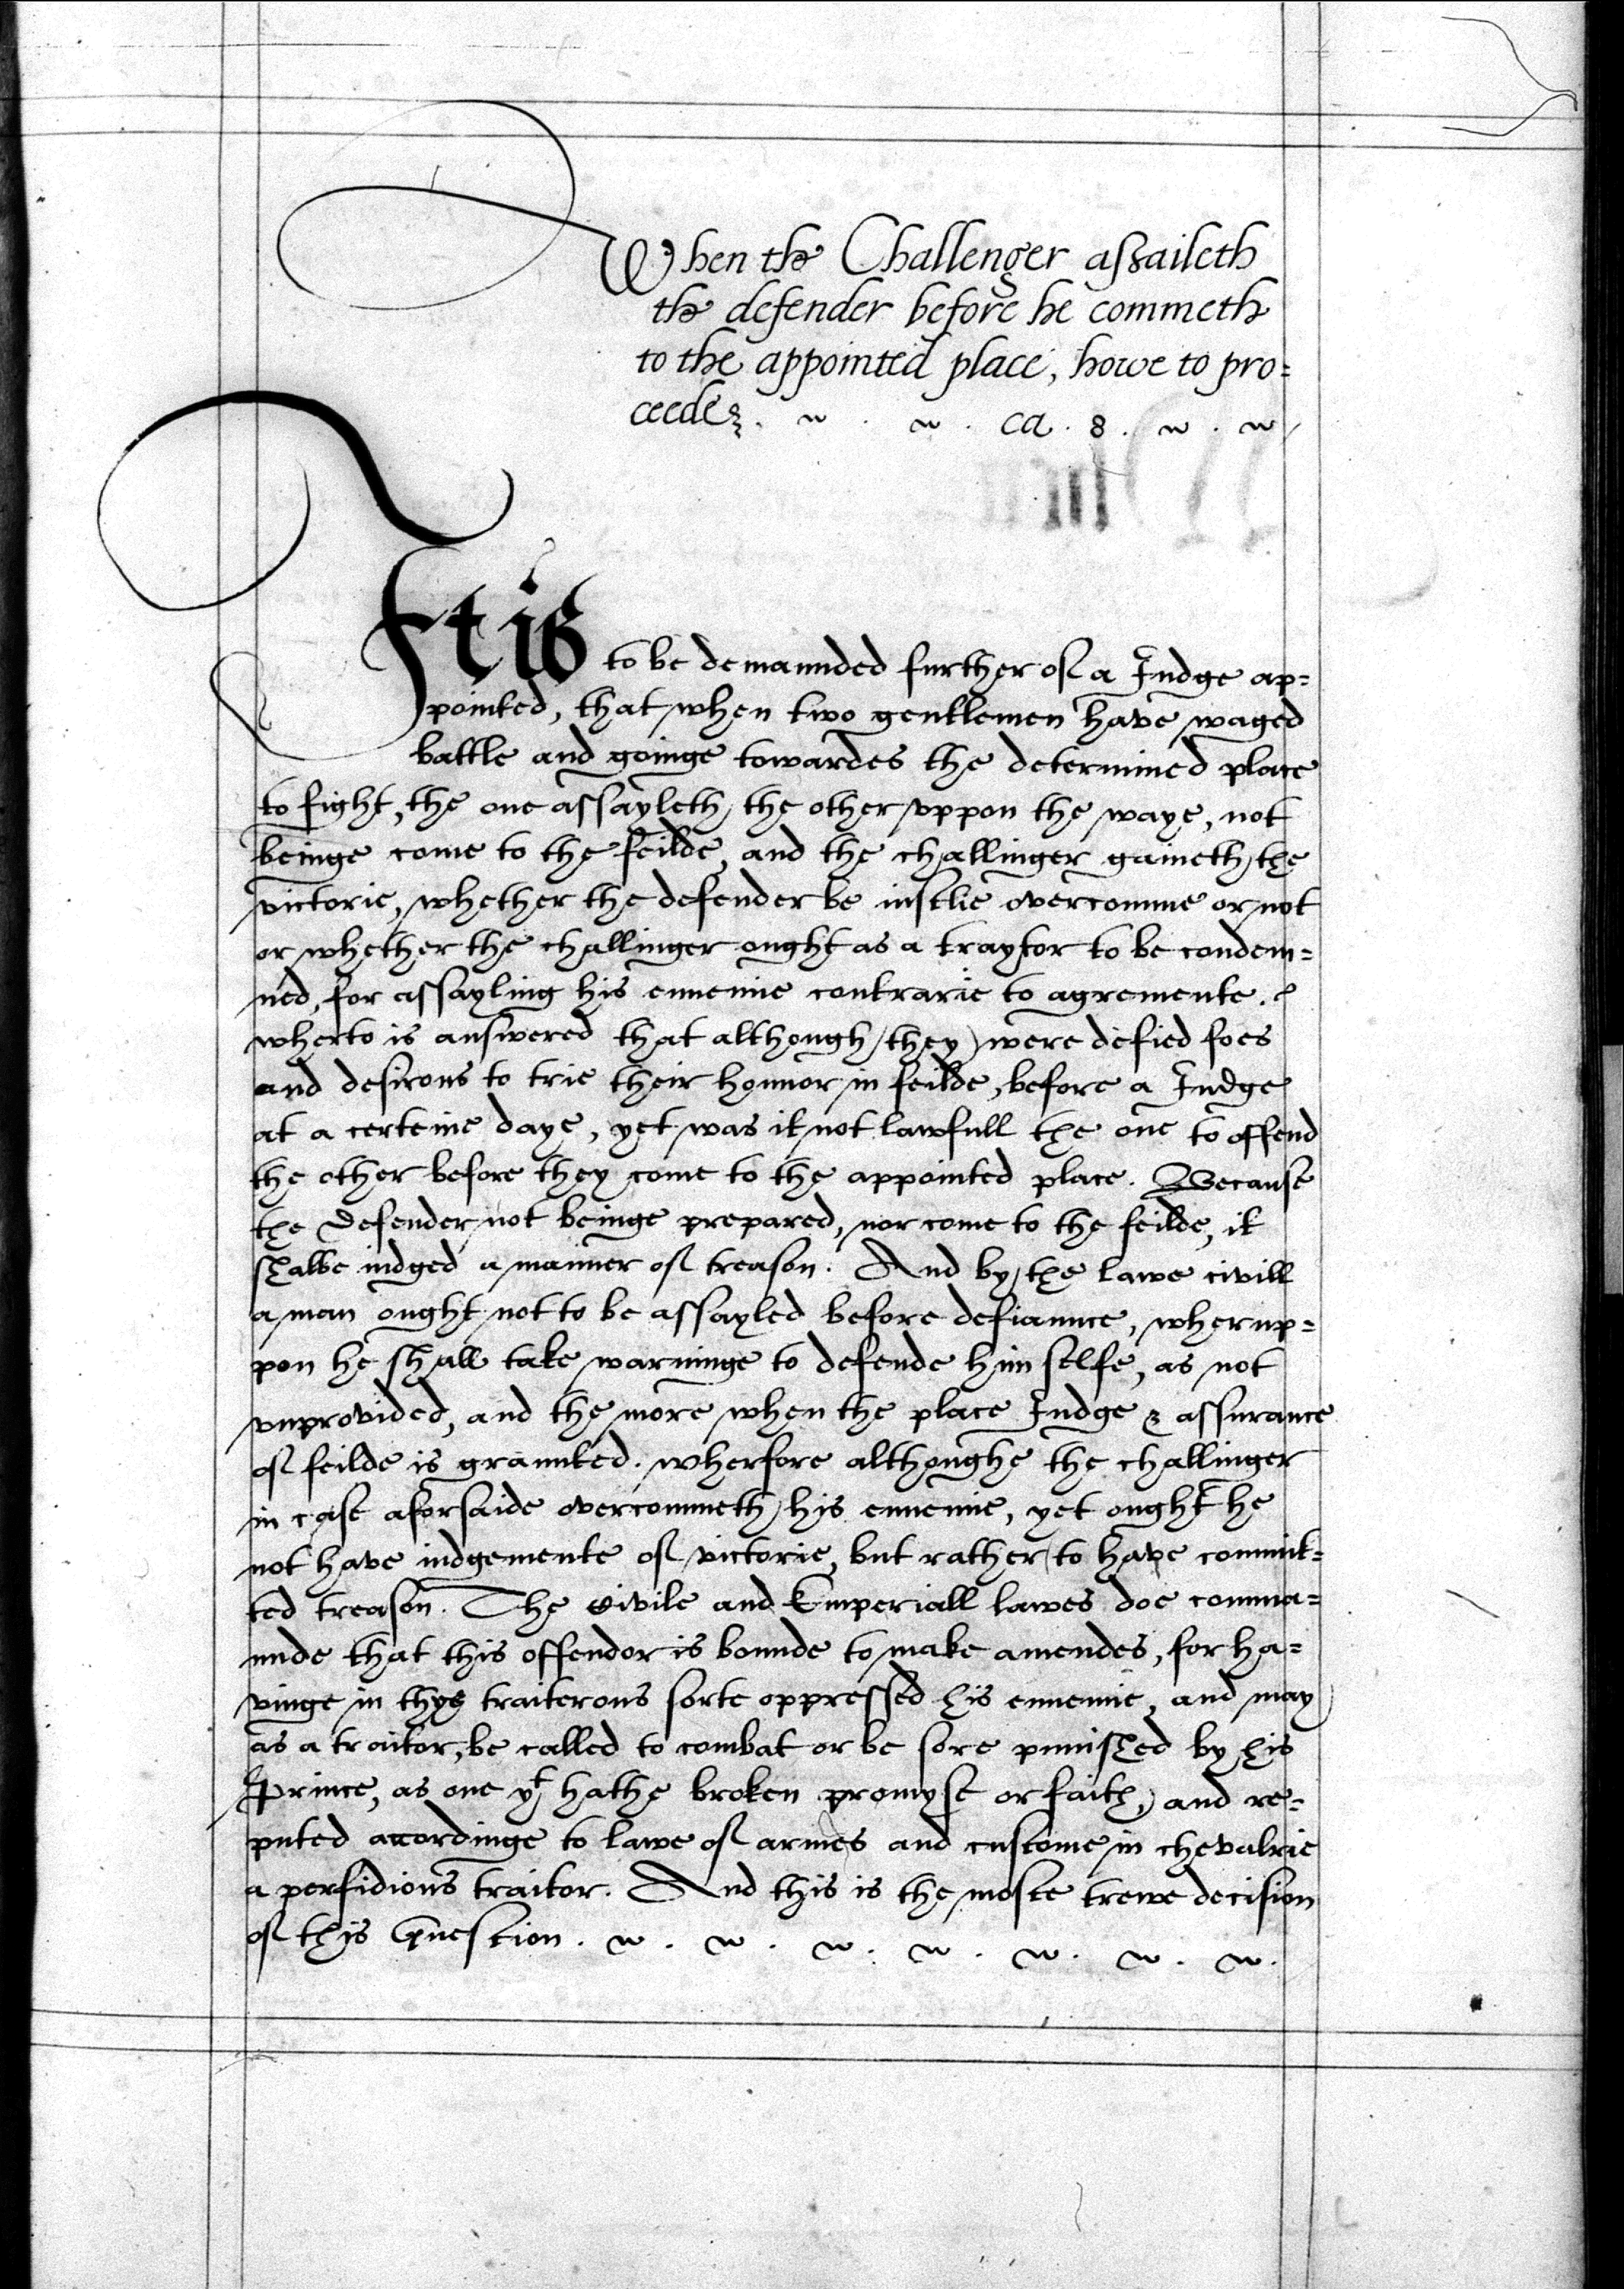 When the Challenger assaileth
the defender before he commeth
to the appointed place, howe to pro=
ceede. ca. 8.
It is to be demaunded further of a Judge ap=
pointed, that when two gentlemen have waged
battle and goinge towardes the determined place
to fight, the one assayleth the other uppon the waye, not
beinge come to the feilde, and the challinger gaineth the
victorie, whether the defender be iustlie overcomme or not
or whether the challinger ought as a traytor to be condem=
ned, for assayling his ennemie contrarie to agremente.
wherto is answered that although they were defied foes
and desirous to trie their honnor in feilde, before a Judge
at a certeine daye, yet was it not lawfull the one to offend
the other before they come to the appointed place. Because
the defender not beinge prepared, nor come to the feilde, it
shalbe iudged a manner of treason. And by the lawe civill
a man ought not to be assayled before defiaunce, wherup=
pon he shall take warninge to defende him selfe, as not
unprovided, and the more when the place Judge & assurance
of feilde is graunted. wherfore althoughe the challinger
in case aforsaide overcommeth his ennemie, yet ought he
not have iudgemente of victorie, but rather to have commit=
ted treason. The Civile and Emperiall lawes doe comma=
unde that this offendor is bounde to make amendes, for ha=
vinge in thys traiterous sorte oppressed his ennemie, and may
as a traitor, be called to combat or be sore punished by his
Prince, as one yt hathe broken promyse or faith, and re=
puted accordinge to lawe of armes and custome in chevalrie
a perfidious traitor. And this is the moste trewe decision
of this Question.